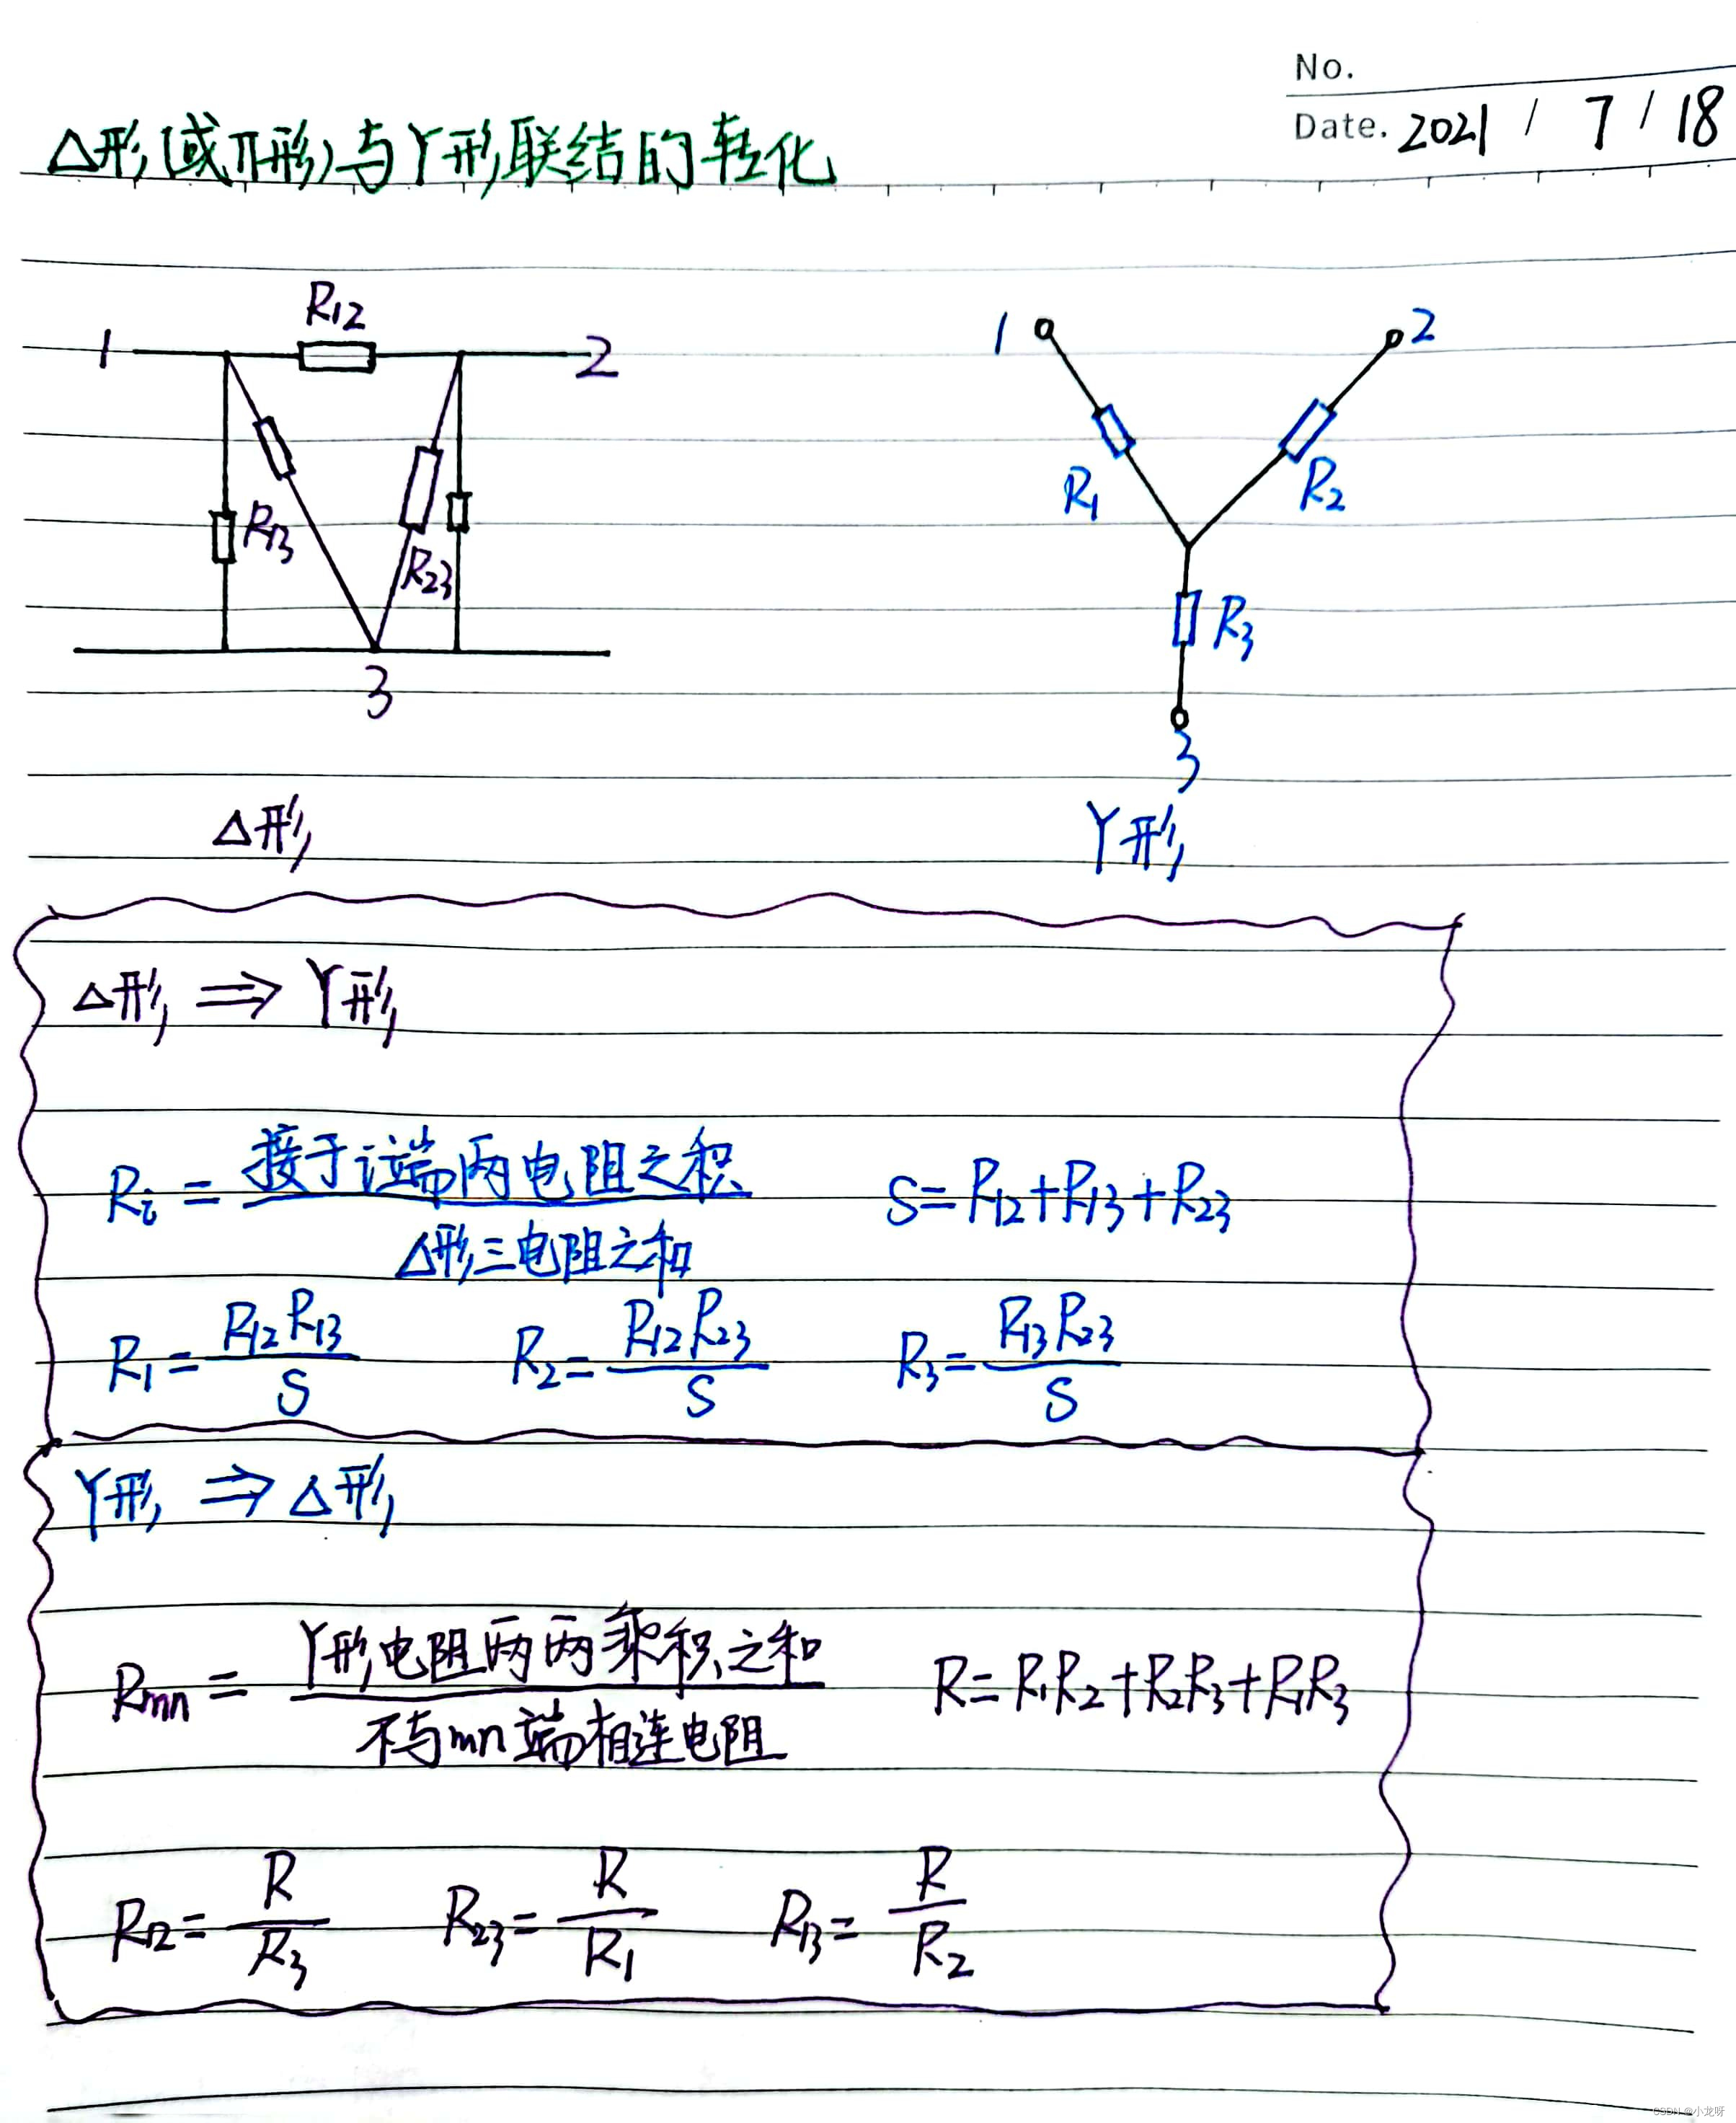 No.
Date. 2021 / 7 / 18
△形(或π形)与Y形联结的转化
R12
1
2
R13
R23
3
△形
1
2
R1
R2
R3
3
Y形
△形 ⇒ Y形
Ri = 接于i端两电阻之积 / △形三电阻之和 S=R12+R13+R23
R1 = R12R13 / S R2 = R12R23 / S R3 = R13R23 / S
Y形 ⇒ △形
Rmn = Y形电阻两两乘积之和 / 不与mn端相连电阻 R=R1R2+R2R3+R1R3
R12 = R / R3 R23 = R / R1 R13 = R / R2
CSDN @小龙呀